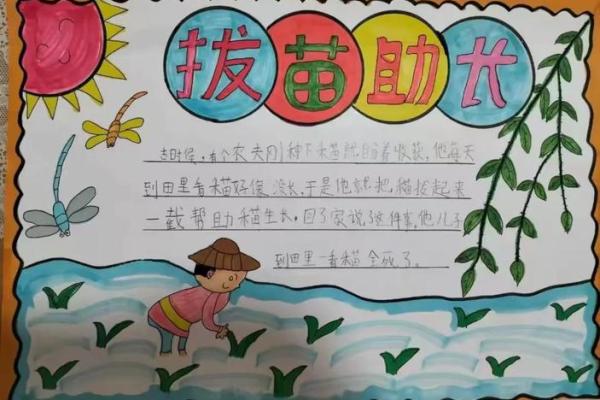 拔苗助长
古时候,有个农夫刚种下禾苗就盼着收获,他每天
到田里看苗好像没长,于是他就把苗拔起来
一截帮助苗生长,回了家说了这件事,他儿子
到田里一看苗全死了。